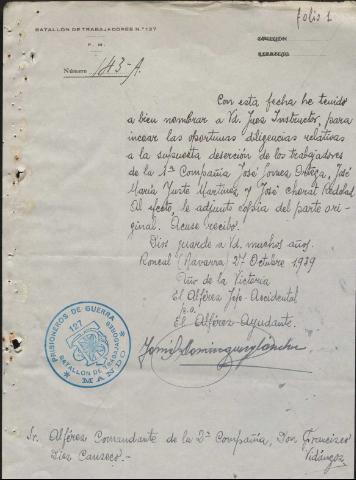 folio 1
BATALLÓN DE TRABAJADORES N.º 127
P. M.
Número 143-A.
Con esta fecha he tenido
a bien nombrar a Vd. Juez Instructor, para
incoar las oportunas diligencias relativas
a la supuesta deserción de los trabajadores
de la 1ª Compañía José Gomez Ortega, José
María Yuste Martínez y José Choral
Al efecto, le adjunto copia del parte ori-
ginal. Acuse recibo.
Dios guarde a Vd. muchos años.
Roncal (Navarra) 27 Octubre 1939
Año de la Victoria
El Alférez Jefe-Accidental
P.O.
El Alférez-Ayudante.
PRISIONEROS DE GUERRA
127
BATALLON DE TRABAJADORES
MANDO
Sr. Alférez Comandante de la 2ª Compañía, Don Francisco
Diez Canseco.- Vidángoz